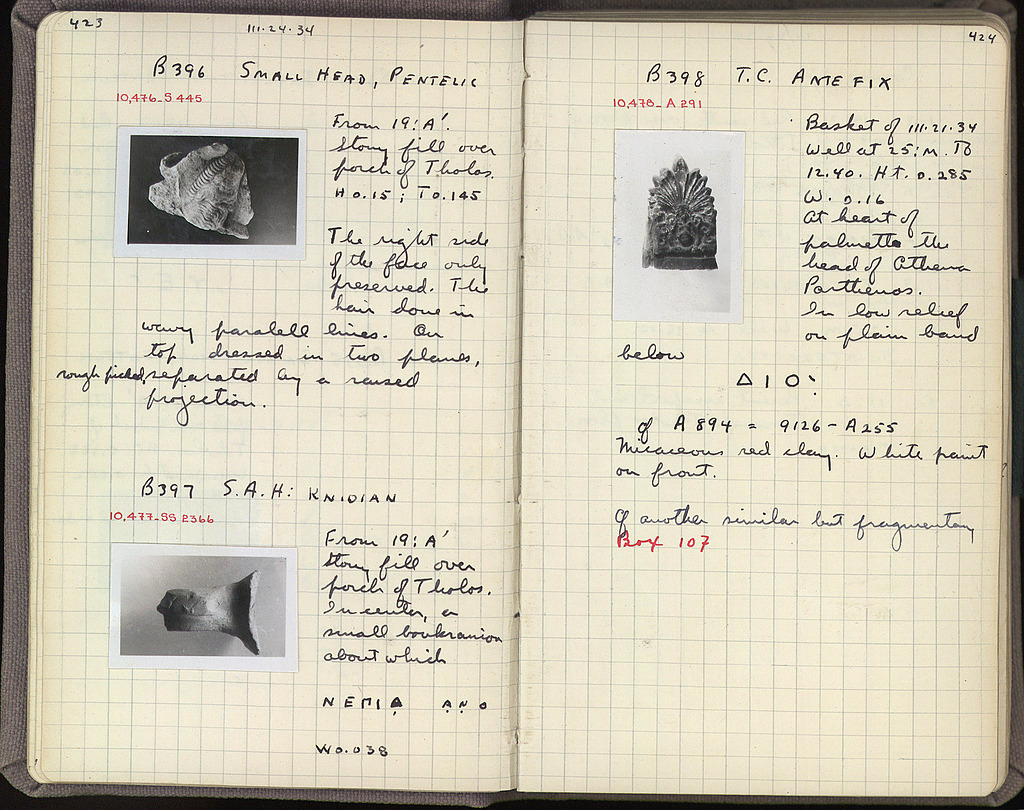 423
111·24·34
B396 SMALL HEAD, PENTELIC
10,476_S 445
From 19:A'.
Stony fill over
porch of Tholos.
H 0.15 ; T 0.145
The right side
of the face only
preserved. The
hair done in
wavy paralell lines. On
top dressed in two planes,
rough picked, separated by a raised
projection.
B397 S.A.H: KNIDIAN
10,477_SS 2366
From 19:A'
Stony fill over
porch of Tholos.
In center, a
small boukranion
about which
ΝΕΠΙΑ ΑΝΟ
W 0.038
424
B398 T.C. ANTEFIX
10,478_A 291
Basket of 111·21·34
Well at 25:M. To
12.40. Ht. 0.285
W. 0.16
At heart of
palmette the
head of Athena
Parthenos.
In low relief
on plain band
below
ΔΙΟ
cf A 894 = 9126-A255
Micaceous red clay. White paint
on front.
Cf another similar but fragmentary
Box 107